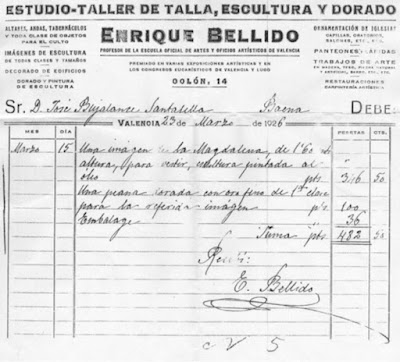 ESTUDIO-TALLER DE TALLA, ESCULTURA Y DORADO
ALTARES, ANDAS, TABERNÁCULOS
Y TODA CLASE DE OBJETOS
PARA EL CULTO
IMÁGENES DE ESCULTURA
DE TODAS CLASES Y TAMAÑOS
DECORADO DE EDIFICIOS
DORADO Y PINTURA
DE ESCULTURA
ENRIQUE BELLIDO
PROFESOR DE LA ESCUELA OFICIAL DE ARTES Y OFICIOS ARTÍSTICOS DE VALENCIA
PREMIADO EN VARIAS EXPOSICIONES ARTÍSTICAS Y EN
LOS CONGRESOS EUCARÍSTICOS DE VALENCIA Y LUGO
COLÓN, 14
ORNAMENTACIÓN DE IGLESIAS
CAPILLAS, ORATORIOS,
SALONES, ETC.
PANTEONES LÁPIDAS
TRABAJOS DE ARTE
RESTAURACIONES
Sr. D. José Pujalance Santaella Baena DEBE:
VALENCIA 23 de Marzo de 1926
MES DÍA PESETAS CTS.
Marzo 15 Una imágen de la Magdalena, de 1'60 mts
altura, para vestir, escultura pintada al "
óleo pts 346 50
Una peana dorada con oro fino de 1ª clase
para la referida imágen pts 100
Embalage " 36
Suma pts 482 50
Recibí:
E. Bellido